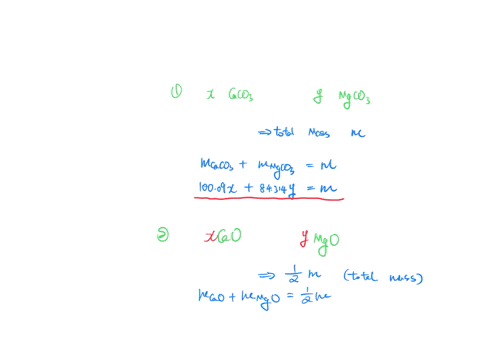 ① x CaCO₃ y MgCO₃
⇒ total mass m
mCaCO₃ + mMgCO₃ = m
100.09x + 84.314y = m
② xCaO y MgO
⇒ 1/2 m (total mass)
mCaO + mMgO = 1/2 m